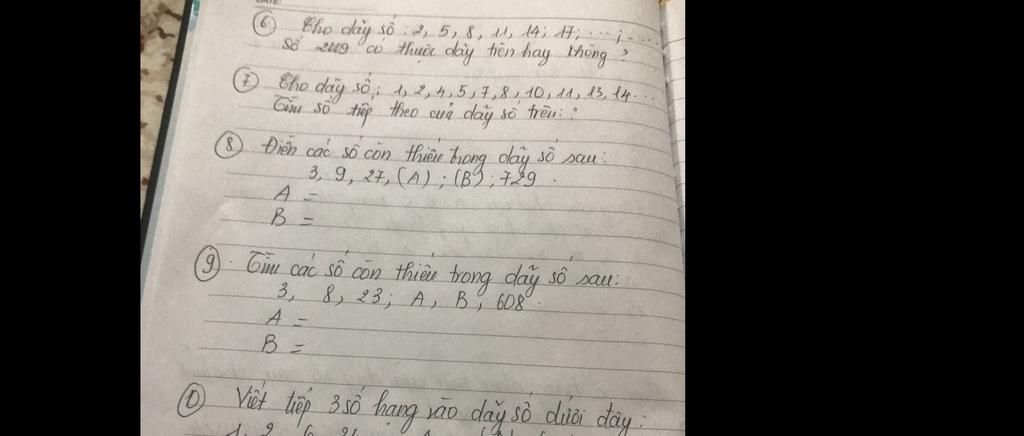 DATE:
⑥ Cho dãy số : 2, 5, 8, 11, 14; 17; ...; ....
Số 2009 có thuộc dãy trên hay không ?
⑦ Cho dãy số; 1, 2, 4, 5, 7, 8, 10, 11, 13, 14...
Tìm số tiếp theo của dãy số trên: ?
⑧ Điền các số còn thiếu trong dãy số sau:
3, 9, 27, (A) ; (B) ; 729 .
A =
B =
⑨ . Tìm các số còn thiếu trong dãy số sau:
3, 8, 23; A, B, 608 .
A =
B =
Viết tiếp 3 số hạng vào dãy số dưới đây:
1, 2, 6, 24